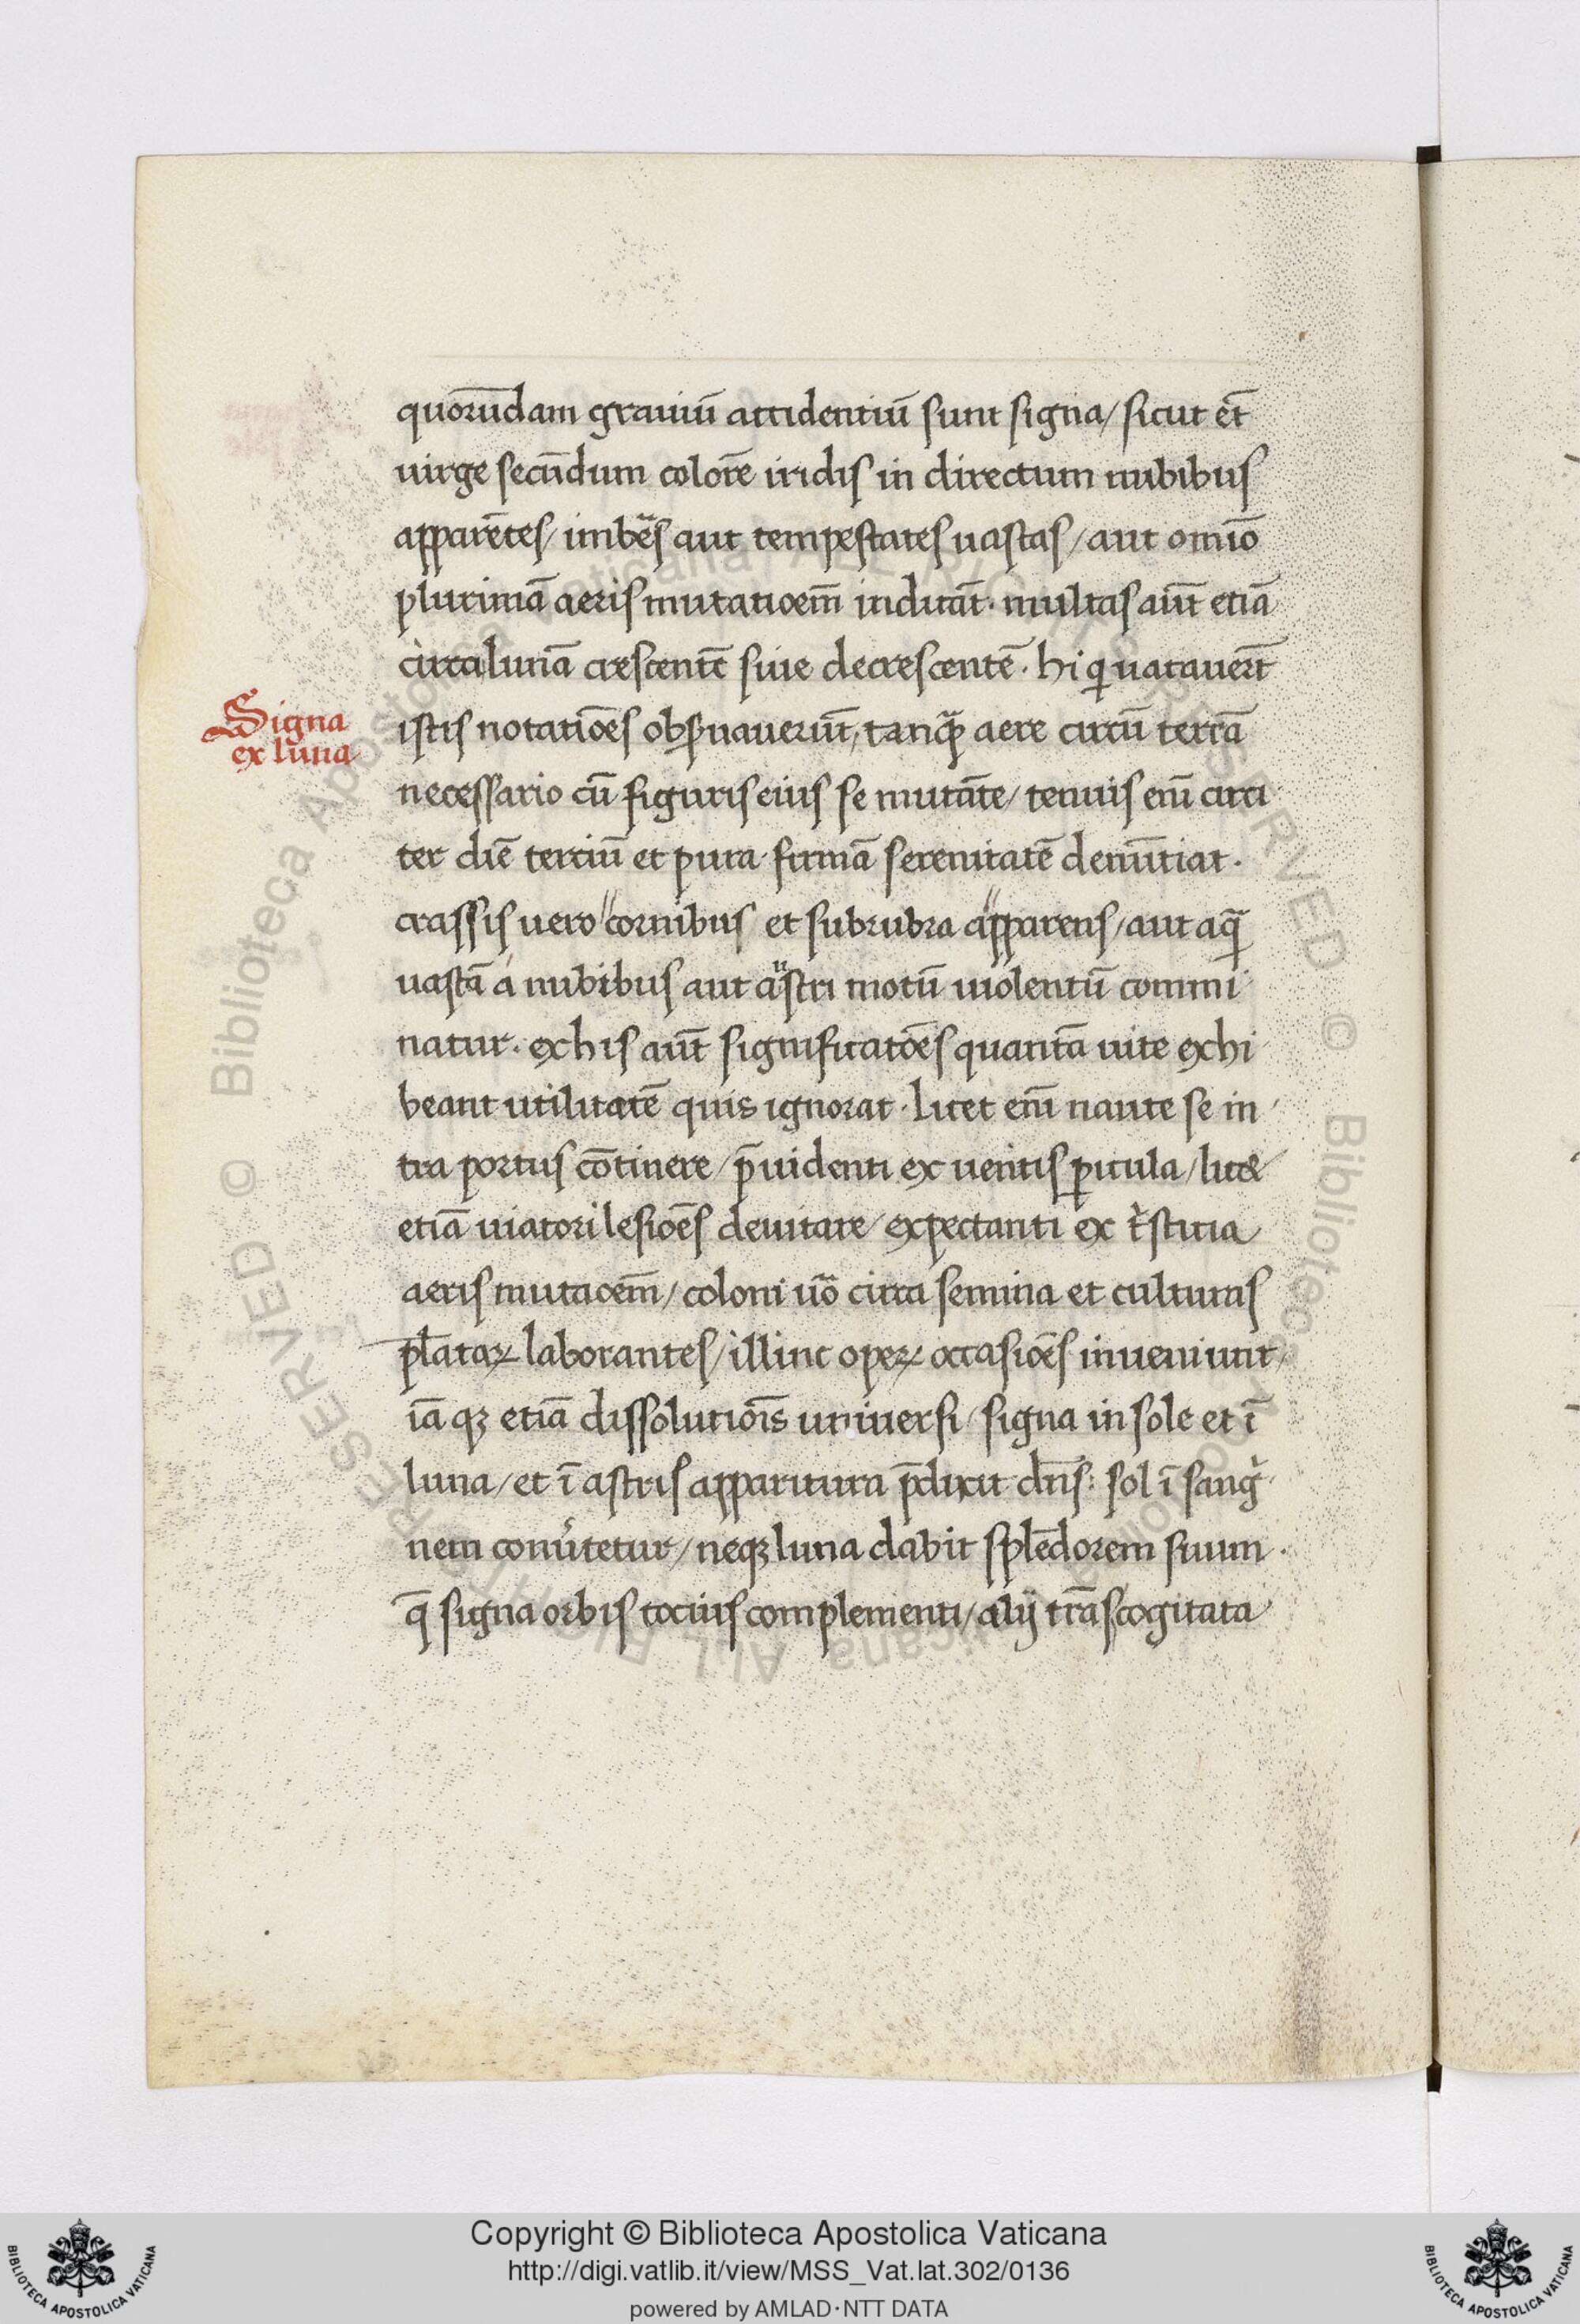 quorūdam grauiū accidentiū sunt signa/ sicut et̄
uirge secūdum colorē iridis in directum nubibus
apparētes/ imbēs aut tempestates uastas/ aut omīo
plurimā aeris mutatioem̄ indicāt· multas aūt etiā
circa lunā crescentē siue decrescentē· hi qui uacauer̄t
Signa
ex luna
istis notatiōes obseruauerūt/ tanqȝ aere circū terrā
necessario cū figuris eius se mutāte/ tenuis enī circi
ter diē terciū et pura firmā serenitatē denūtiat·
crassis uero cornibus et subrubra apparens/ aut aqā
uastā á nubibus aut austri motū uiolentū commi
natur· ex his aūt significatōes quantā uite exhi
beant utilitatē quis ignorat· licet enī naute se in
tra portus cōtinere/ p̄uidenti ex uentis ꝑicula/ lic&
etiā uiatori lesiōes deuitare/ expectanti ex tristicia
aeris mutacoem̄/ coloni uō circa semina et culturas
plātaꝝ laborantes/ illinc opeꝝ occasiōes inueniunt/
iā qȝ etiā dissolutiōis uniuersi/ signa in sole et ī
luna/ et ī astris apparitura p̄dixit dn̄s: sol ī sangi
nem conuertetur/ neqȝ luna dabit splēdorem suum·
q̄ signa orbis tocius complementi/ alij trāscogitata
Copyright © Biblioteca Apostolica Vaticana
http://digi.vatlib.it/view/MSS_Vat.lat.302/0136
powered by AMLAD·NTT DATA
BIBLIOTECA APOSTOLICA VATICANA
BIBLIOTECA APOSTOLICA VATICANA